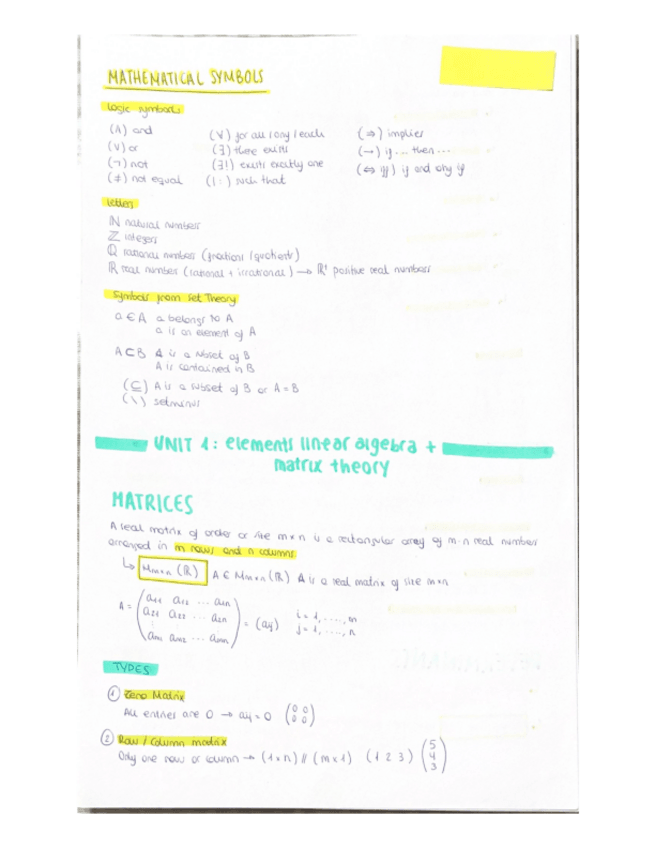 MATHEMATICAL SYMBOLS
Logic symbols
(∧) and (∀) for all / any / each (⇒) implies
(∨) or (∃) there exists (→) if ... then ...
(¬) not (∃!) exists exactly one (⇔ iff) if and only if
(≠) not equal (| :) such that
Letters
ℕ natural numbers
ℤ integers
ℚ rational numbers (fractions / quotients)
ℝ real number (rational + irrational) → ℝ⁺ positive real numbers
Symbols from set Theory
a ∈ A a belongs to A
a is an element of A
A ⊂ B A is a subset of B
A is contained in B
(⊆) A is a subset of B or A = B
(∖) setminus
UNIT 1: elements linear algebra +
matrix theory
MATRICES
A real matrix of order or size m×n is a rectangular array of m·n real number
arranged in m rows and n columns.
↳ Mm×n (ℝ) A ∈ Mm×n (ℝ) A is a real matrix of size m×n
A = ( a11 a12 ... a1n
a21 a22 ... a2n
⋮
am1 am2 ... amn ) = (aij) i = 1, ...., m
j = 1, ...., n
TYPES
① Zero Matrix
All entries are 0 → aij = 0 (0 0
0 0)
② Row / Column matrix
Only one row or column → (1×n) // (m×1) (1 2 3) (5
4
3)